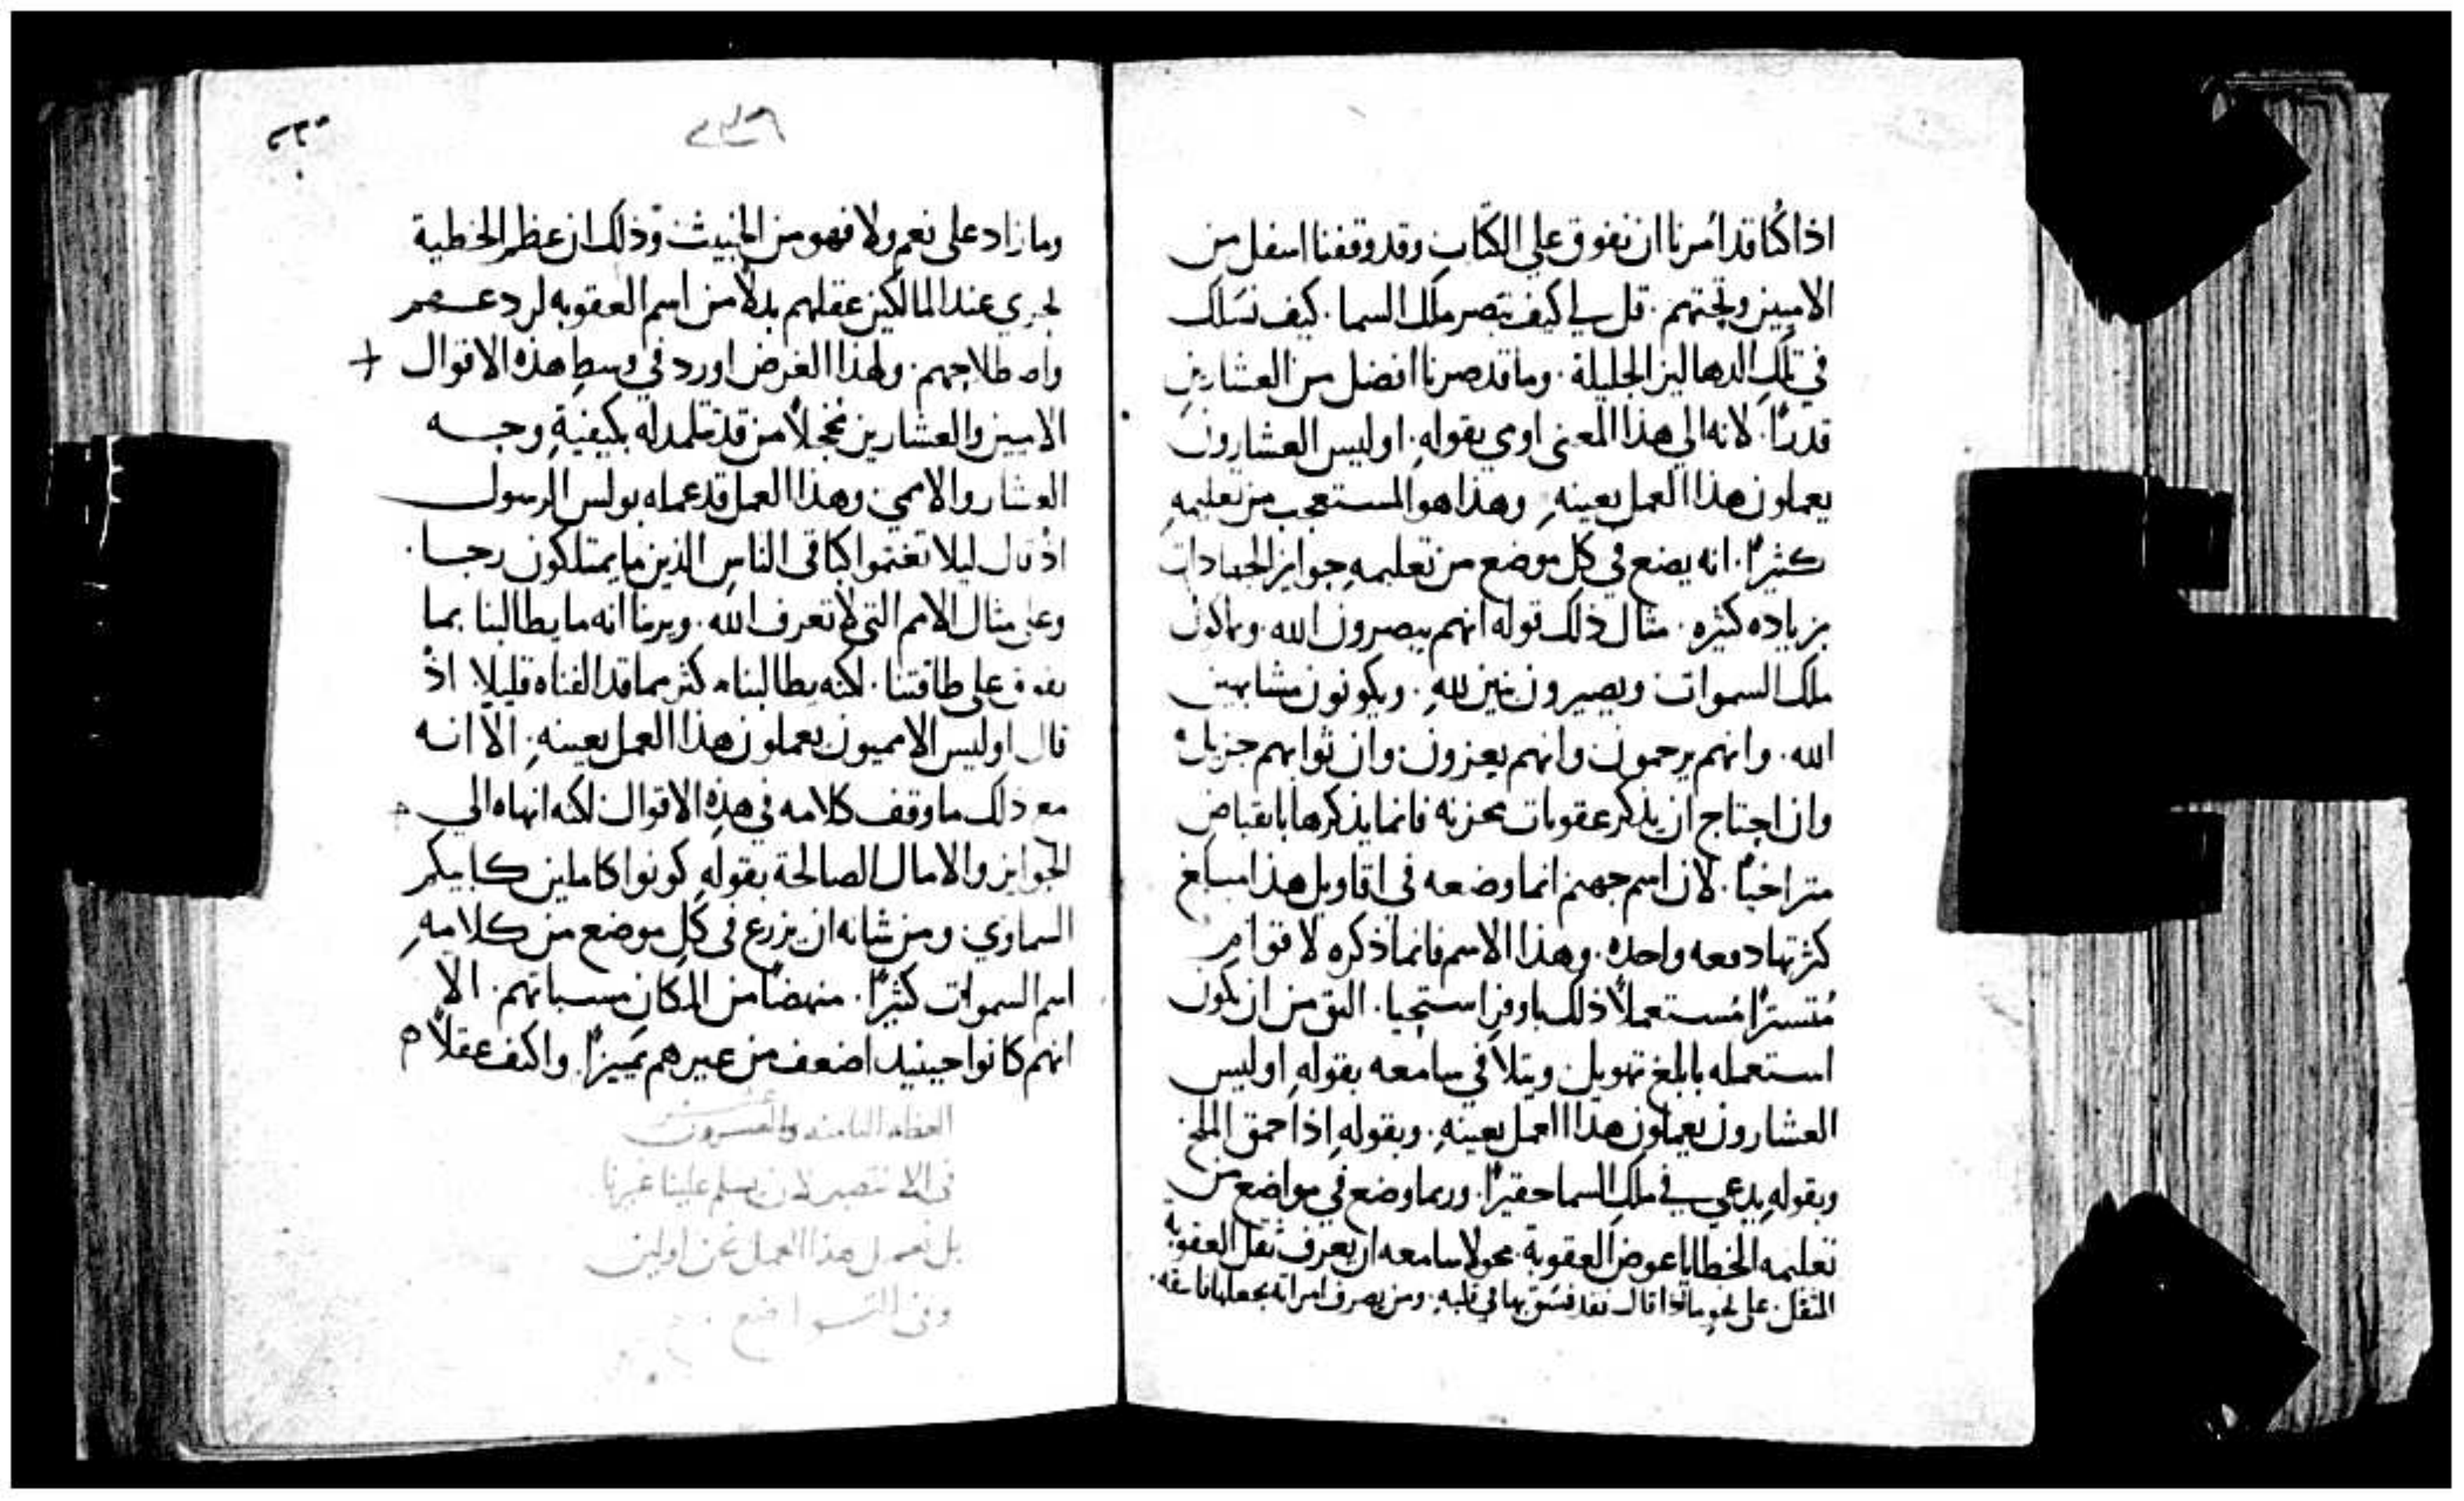 اذا كُنا قد اُمرنا ان نفوق على الكتّاب وقد وقفنا اسفل من
الاميين وتحتهم. قل لي كيف نبصر ملك السما. كيف نسلك
في تلك الدهاليز الجليلة. وما قد صرنا افضل من العشارين
قدرًا. لانه الي هذا المعنى اومي بقوله. اوليس العشارون
يعملون هذا العمل بعينهِ. وهذا هو المستعجب من تعليمهِ
كثيرًا. انه يضع في كل موضع من تعليمهِ جوايز الجهادات
بزياده كثيره. مثال ذلك قوله انهم يبصرون الله. ويرثون
ملك السموات ويصيرون بنين للهِ. ويكونون مشابهين
الله. وانهم يرحمون وانهم يعزون. وان ثوابهم جزيلٌ
وان احتاج ان يذكر عقوبات محزنه فانما يذكرها بانقباض
متراخيًا. لان اسم جهنم انما وضعه في اقاويل هذا مبلغ
كثرتها دفعه واحده. وهذا الاسم فانما ذكره لاقوام
مُتسترًا مُستعملاً ذلك باوفر استحيا. اليق من ان يكون
استعمله بابلغ تهويل ويتلا في سامعه بقولهِ اوليس
العشارون يعملون هذا العمل بعينهِ. وبقولهِ اذا حمق الملح
وبقولهِ يدعى في ملك السما حقيرًا. وربما وضع في مواضع من
تعليمه الخطايا عوض العقوبة. محولا سامعه ان يعرف ثقل العقوبة
المثقل. على نحو ما اذا قال فقد فسق بها في قلبهِ. ومن يصرف امراته يجعلها فاسقه.
وما زاد على نعم ولا فهو من الخبيث وذلك ان عظم الخطية
يجري عند المالكين عقلهم بدلاً من اسم العقوبه لردعهم
واصطلاحهم. ولهذا الغرض اورد في وسط هذه الاقوال +
الاميين والعشارين مخجلاً من قد تلمد له بكيفيةِ وجه
العشار والاممي. وهذا العمل قد عمله بولس الرسول
اذ قال ليلا تغتموا كباقى الناس الذين ما يمتلكون رجا.
وعلى مثال الامم التي لا تعرف الله. ويرينا انه ما يطالبنا بما
يفوق على طاقتنا. لكنه يطالبنا اكثر مما قد الفناه قليلا. اذ
قال اوليس الامميون يعملون هذا العمل بعينهِ. الّا انه
مع ذلك ما وقف كلامه في هذهِ الاقوال. لكنه انهاه الي
الجوايز والامال الصالحة بقولهِ كونوا كاملين كابيكم
السماوي. ومن شانه ان يزرع في كل موضع من كلامهِ
اسم السموات كثيرًا. منهضًا من المكان مسباتهم. الّا
انهم كانوا حينيد اضعف من غيرهم تمييزًا. واكثف عقلاً م
العظه الثامنه عشر والعشرون
في الا ننتصر لان يسلم علينا غيرنا
بل نعمل هذا العمل نحن اولين
وفي التواضع